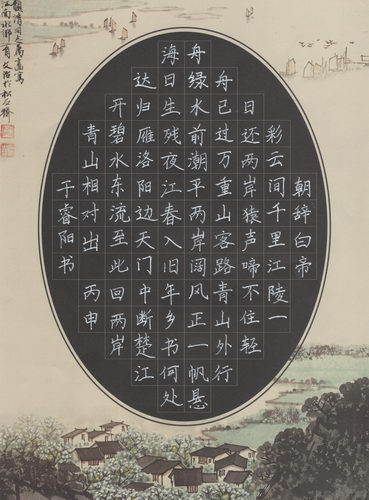 朝辞白帝
彩云间千里江陵一
日还两岸猿声啼不住轻
舟已过万重山客路青山外行
舟绿水前潮平两岸阔风正一帆悬
海日生残夜江春入旧年乡书何处
达归雁洛阳边天门中断楚江
开碧水东流至此回两岸
青山相对出 丙申
于睿阳书